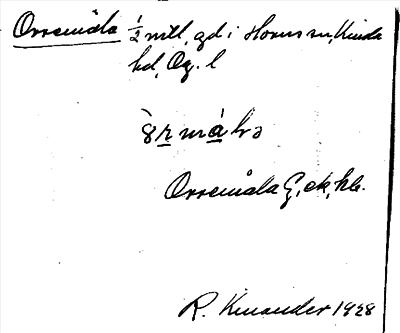 Orremåla ½ mtl, gd i Horns sn, Kinda
hd, Ög. l
Orremåla G, ek, hb.
R. Kinander 1928